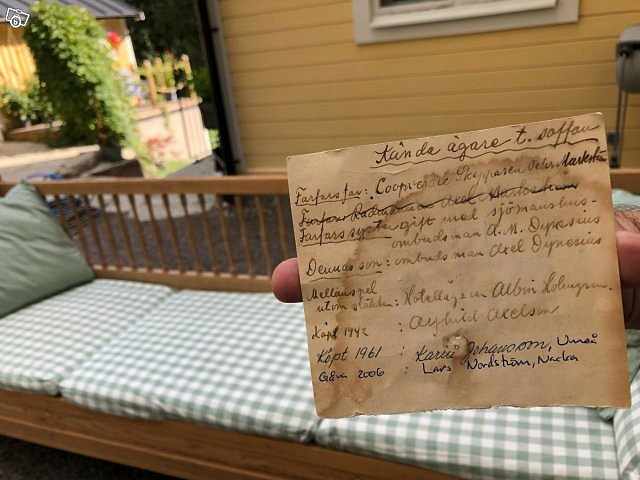 Kända ägare t. soffan
Farfars far: Coopverdie Skepparen Peter Markstedt
Farfars syster gift med sjömanshus-
ombudsman A. M. Dynesius
Dennas son: ombudsman Axel Dynesius
Mellanspel
utom släkten: Hotellägaren Albin Holmgren.
Köpt 1942 : Axelson
Köpt 1961 : Karin Johansson, Umeå
Gåva 2006 : Lars Nordström, Nacka
5